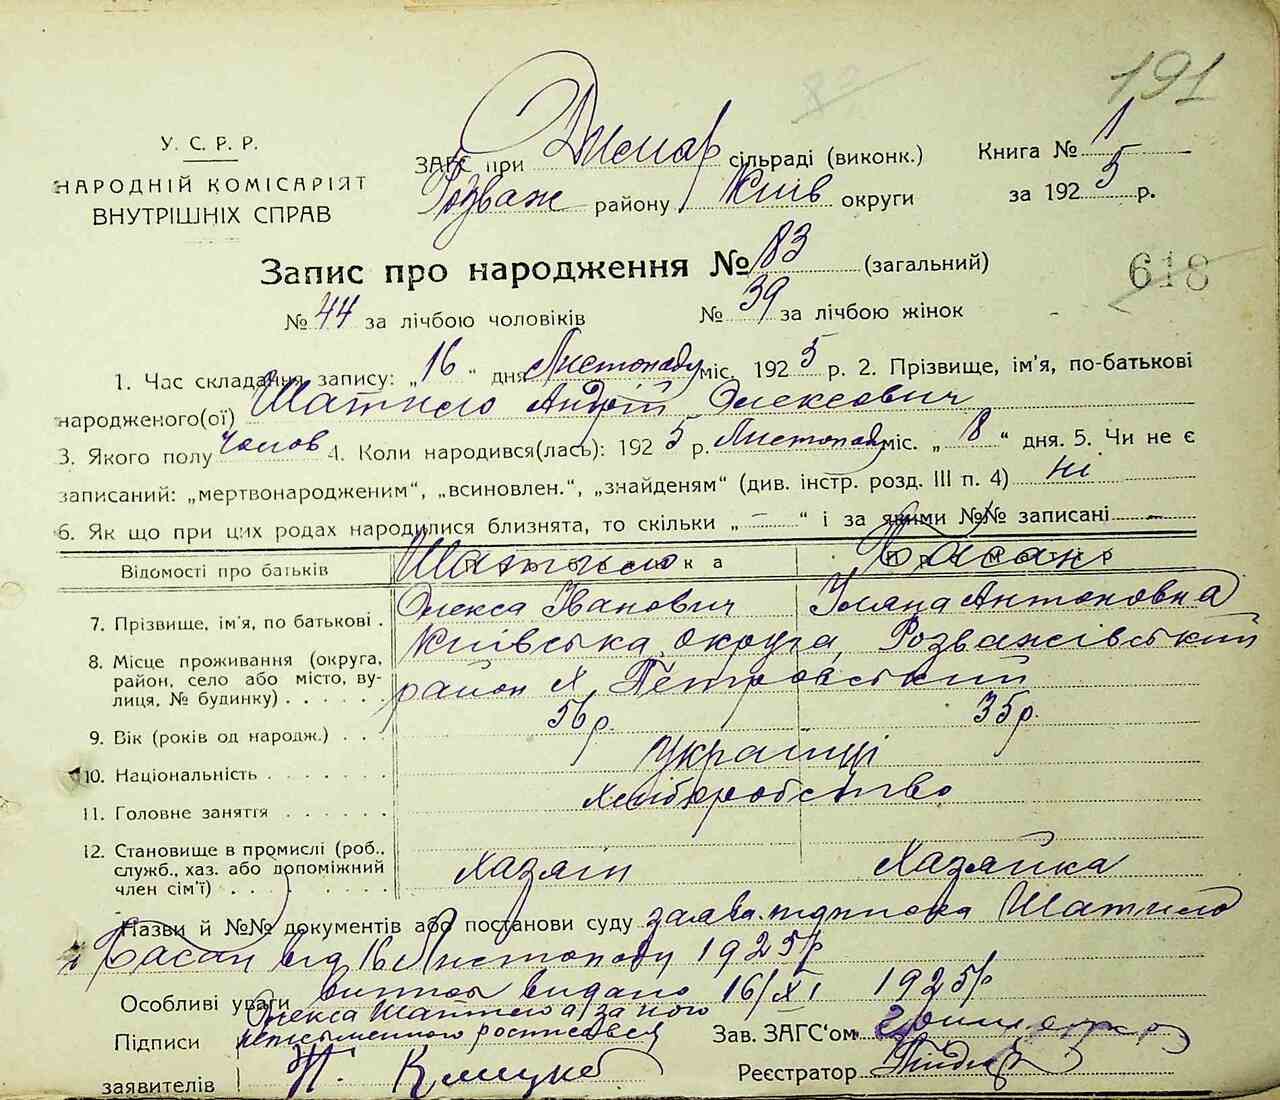 191
У. С. Р. Р.
НАРОДНІЙ КОМІСАРІЯТ
ВНУТРІШНІХ СПРАВ
ЗАГС при сільраді (виконк.) Книга № 1
Розваж району Київ округи за 1925 р.
Запис про народження № 83 (загальний)
618
№ 44 за лічбою чоловіків № 39 за лічбою жінок
1. Час складання запису: „16“ дня Листопаду міс. 1925 р. 2. Прізвище, ім'я, по-батькові
народженого(ої) Шатило Андрій Олексович
3. Якого полу чолов 4. Коли народився(лась): 1925 р. Листопаду міс. „8“ дня. 5. Чи не є
записаний: „мертвонародженим“, „всиновлен.“, „знайденям“ (див. інстр. розд. III п. 4) ні
6. Як що при цих родах народилися близнята, то скільки „ — “ і за якими №№ записані —
Відомості про батьків Шатило Басан
7. Прізвище, ім'я, по батькові . Олекса Іванович Уляна Антоновна
8. Місце проживання (округа, Київська округа, Розважівський
район, село або місто, ву-
лиця, № будинку) . . . . . район х. Петровський
9. Вік (років од народж.) . . . 56 р. 35 р.
10. Національність . . . . . . . Українці
11. Головне заняття . . . . . . хліборобство
12. Становище в промислі (роб.,
служб., хаз. або допоміжний Хазяїн Хазяйка
член сім'ї) . . . . . . . .
Назви й №№ документів або постанови суду заява Шатило
й Басан від 16 Листопаду 1925 р
Особливі уваги видано 16/XI 1925 р
Олекса Шатило а за його
Підписи неписьменного росписався Зав. ЗАГС'ом
заявителів Реєстратор